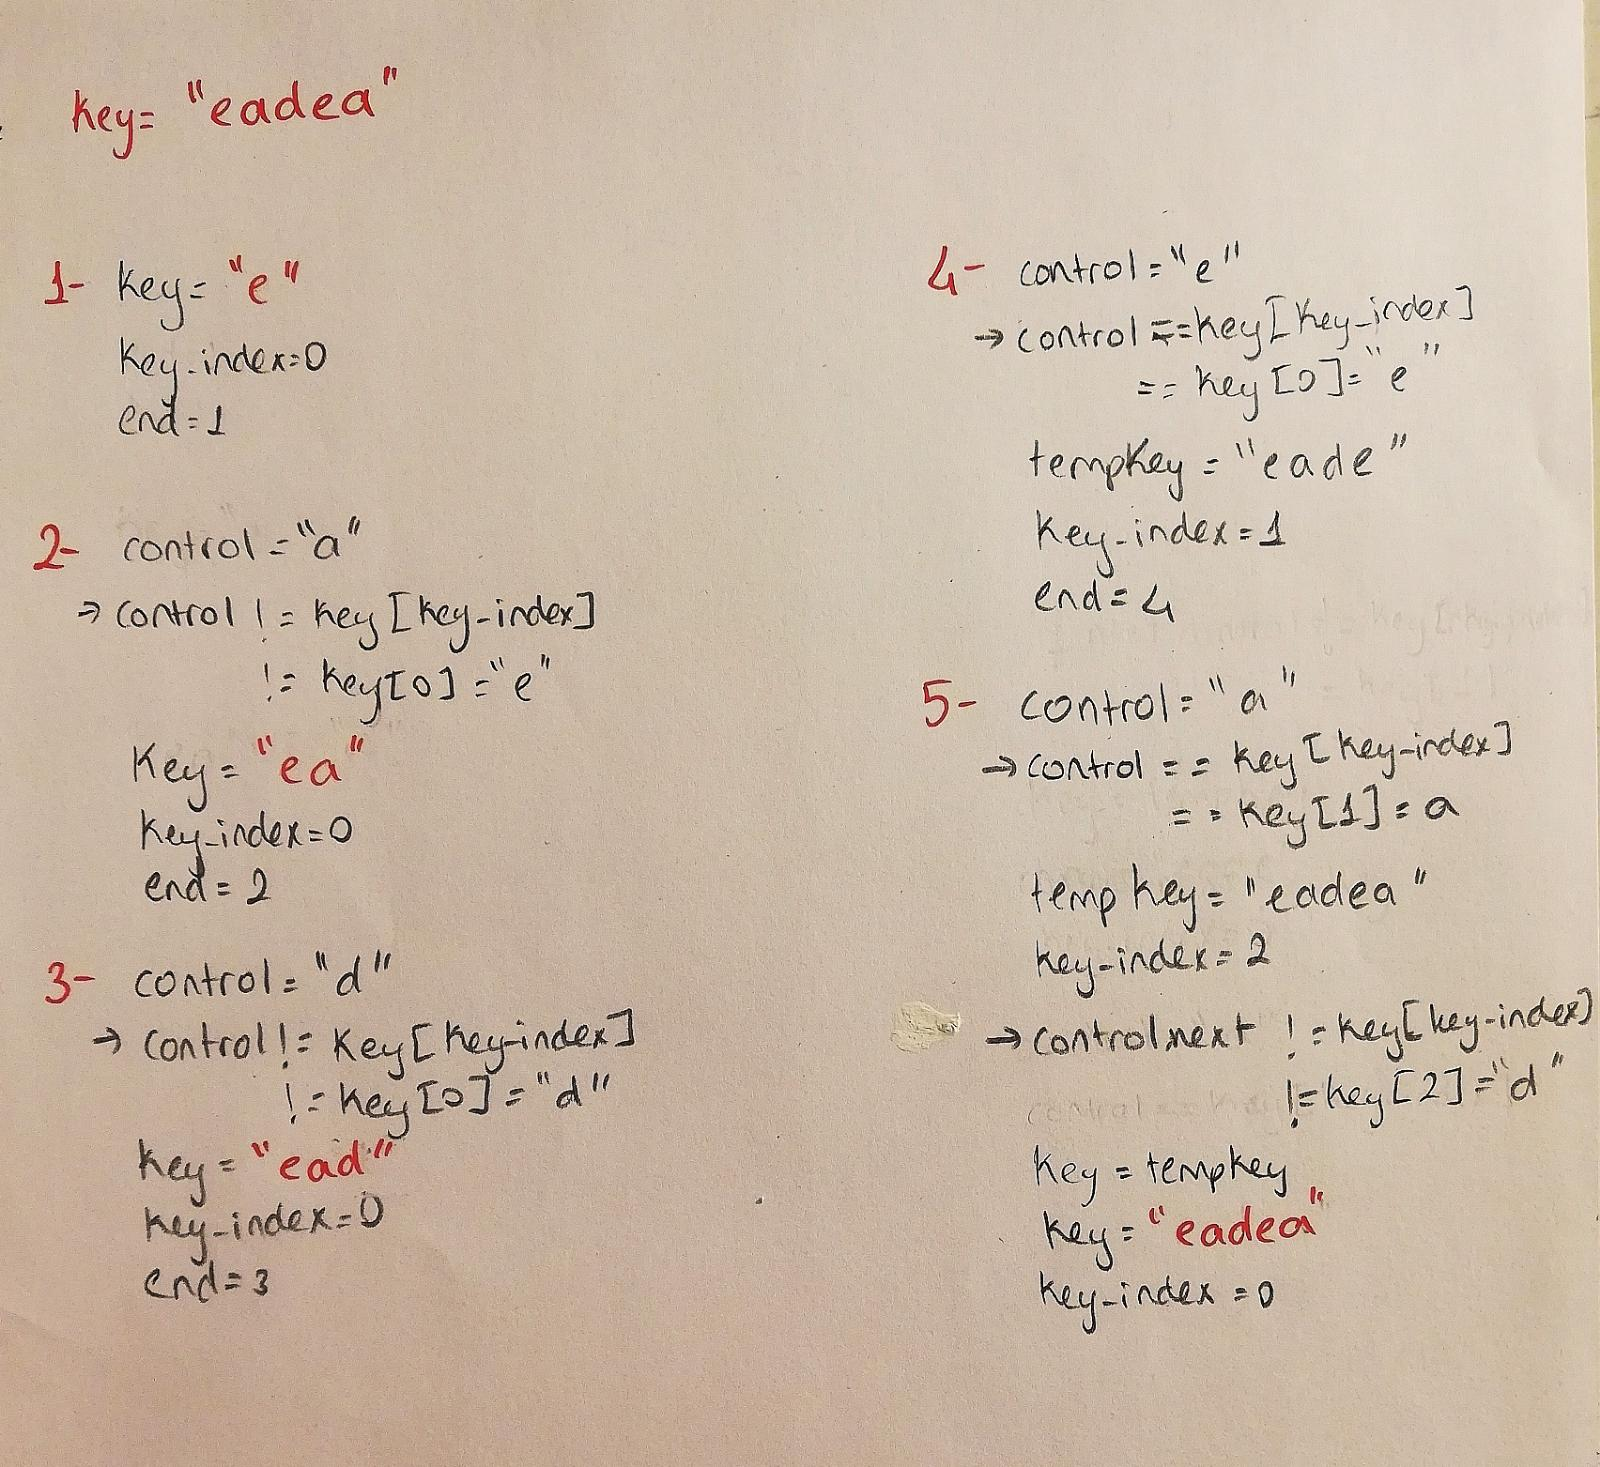 key= "eadea"
1- key= "e"
key-index=0
end=1
2- control="a"
→ control != key[key-index]
!= key[0]="e"
Key= "ea"
key-index=0
end=2
3- control="d"
→ control != Key[key-index]
!= key[0]="d"
key="ead"
key-index=0
end=3
4- control="e"
→ control ==key[key-index]
== key[0]="e"
tempKey="eade"
key-index=1
end=4
5- control="a"
→ control == key[key-index]
== key[1]=a
temp key="eadea"
key-index=2
→ controlnext != key[key-index]
!=key[2]="d"
key=tempkey
key="eadea"
key-index=0